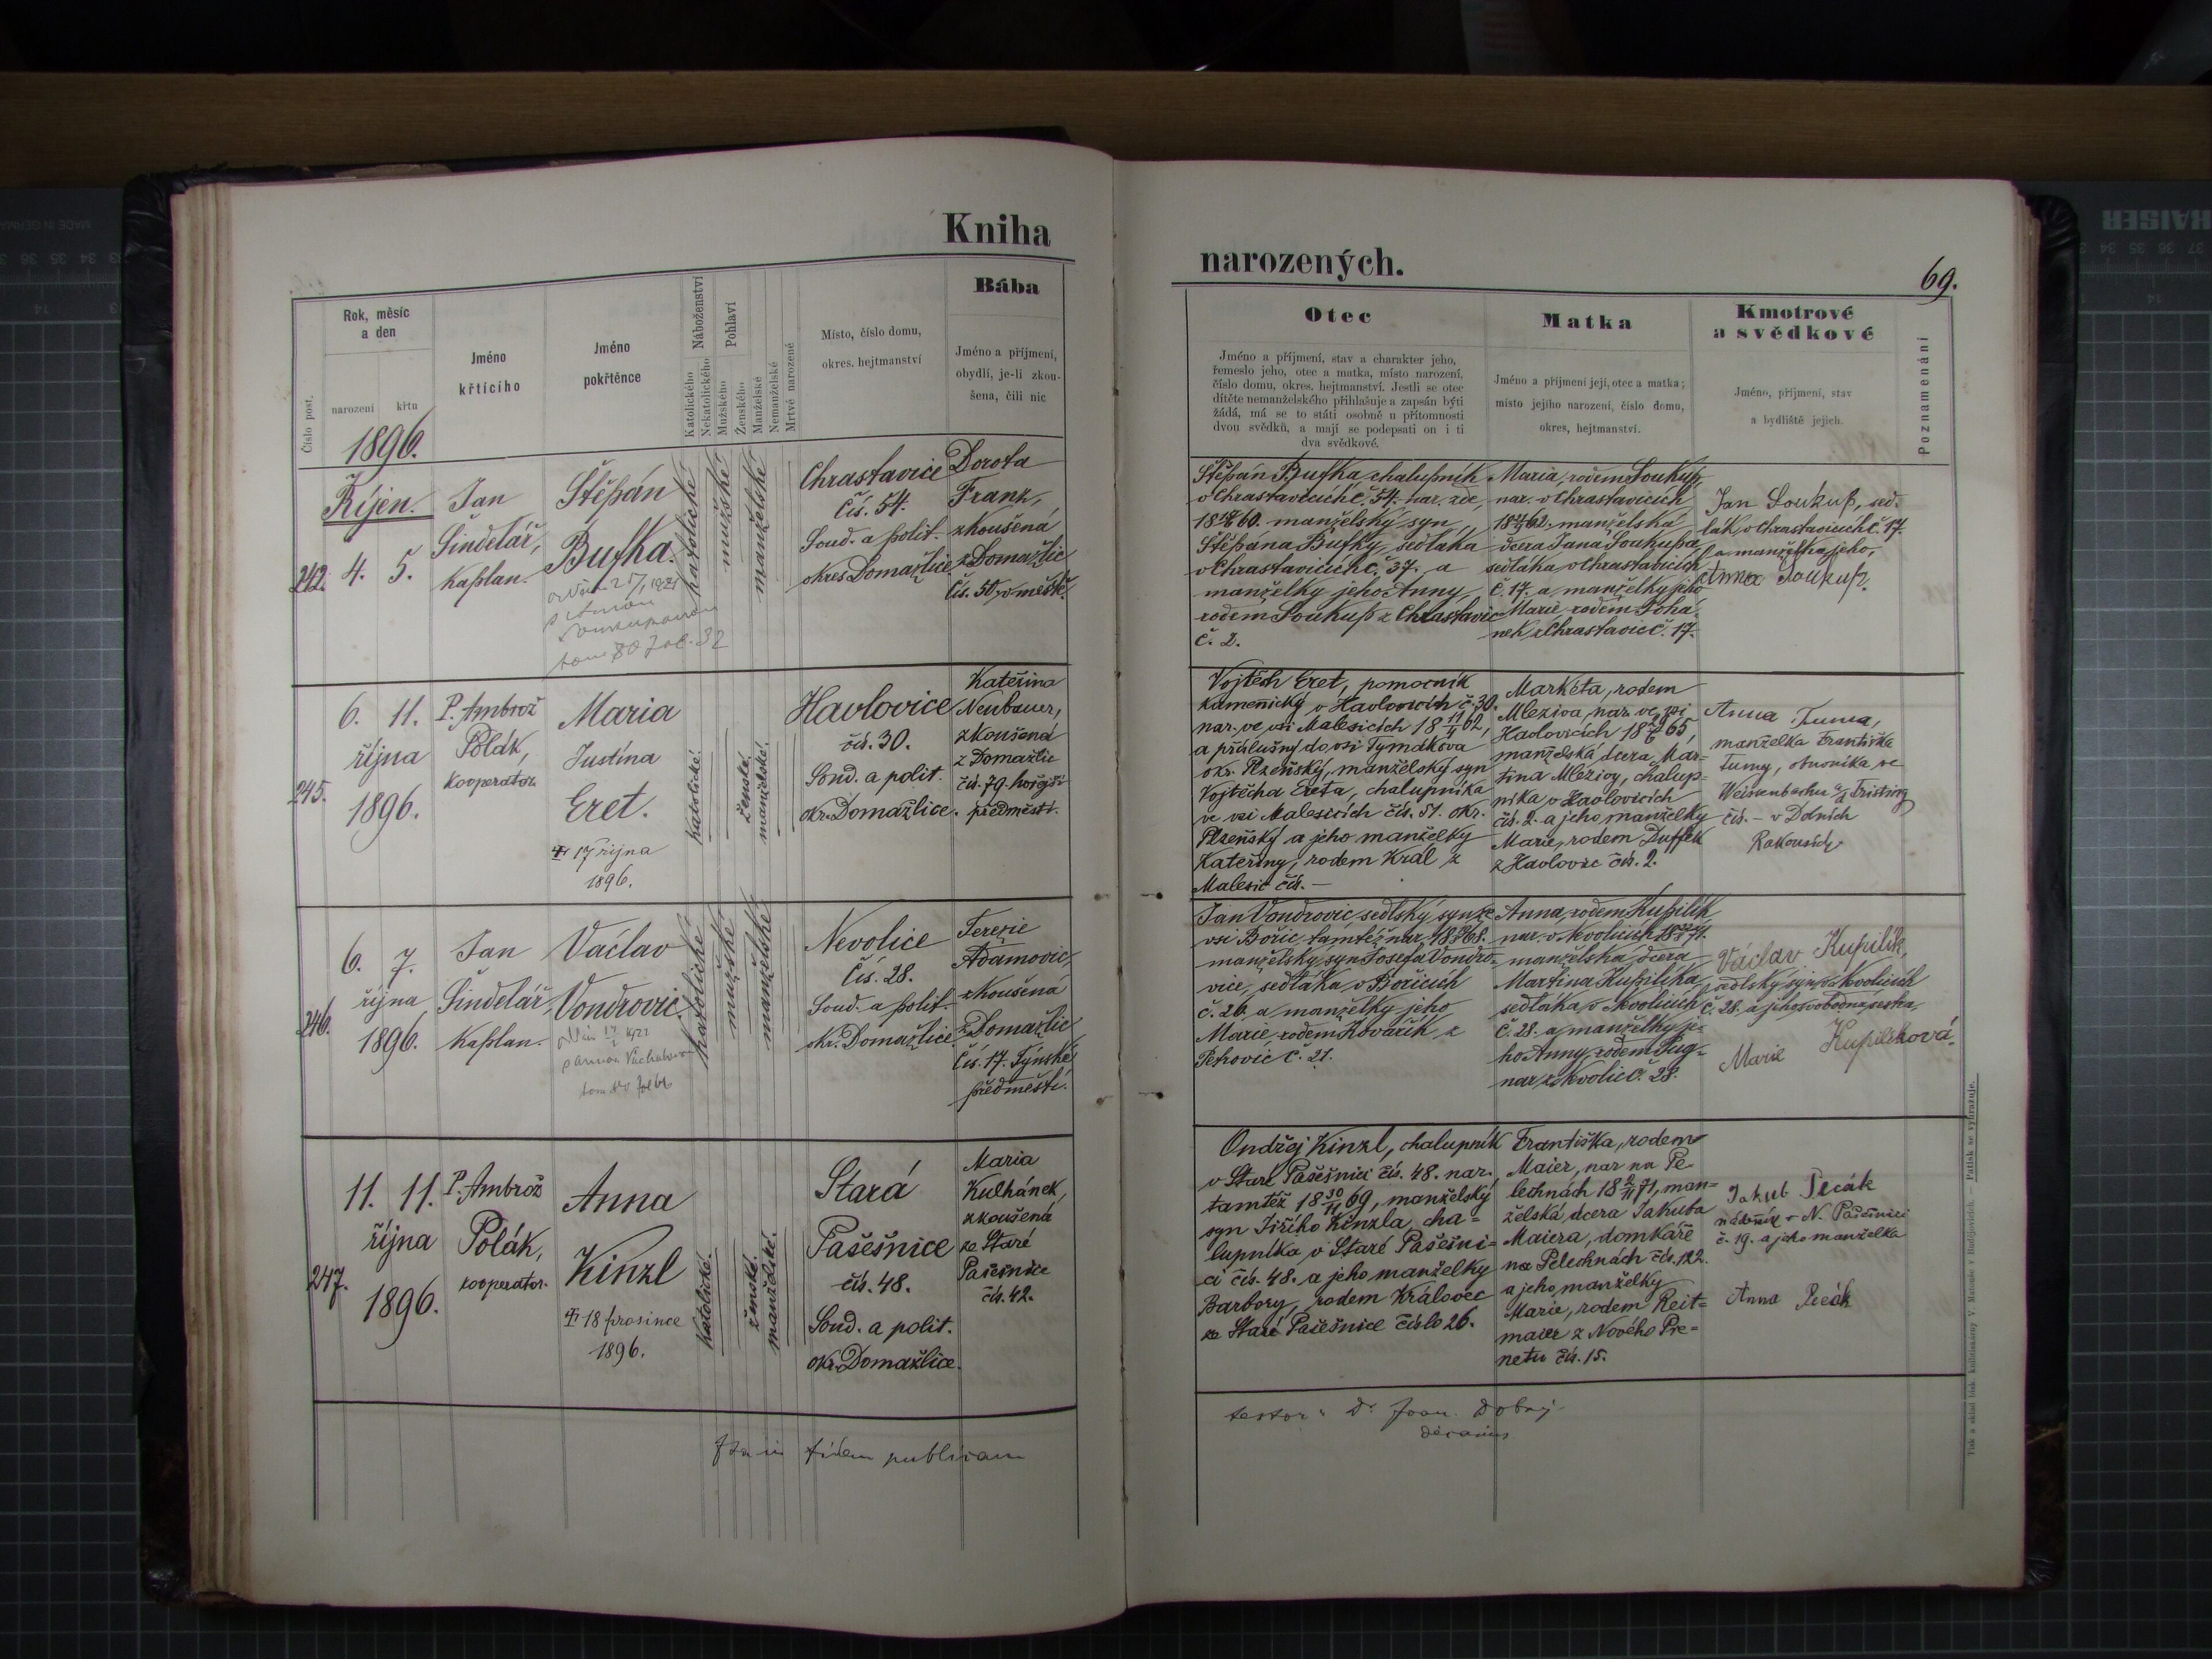 Kniha
Rok, měsíc
a den
narození křtu
Číslo post.
Jméno
křtícího
Jméno
pokřtěnce
Náboženství
Katolického
Nekatolického
Pohlaví
Mužského
Ženského
Manželské
Nemanželské
Mrtvě narozené
Místo, číslo domu,
okres. hejtmanství
Bába
Jméno a příjmení,
obydlí, je-li zkou-
šena, čili nic
1896.
Říjen.
242. 4. 5.
Jan
Šindelář,
Kaplan.
Štěpán
Bufka.
katolické
mužské
manželské
Chrastavice
Čís. 54.
Soud. a polit.
okres Domažlice
Dorota
Franz,
zkoušená
z Domažlic
Čís. 50 v městě.
245.
6. 11.
října
1896.
P. Ambrož
Polák,
kooperator.
Maria
Justina
Eret.
17 října
1896.
katolické.
ženské.
manželské.
Havlovice
čís. 30.
Soud. a polit.
okr. Domažlice.
Kateřina
Neubauer,
zkoušená
z Domažlic
čís. 79. hořejší
předměstí.
246.
6. 7.
října
1896.
Jan
Šindelář,
Kaplan.
Václav
Vondrovic.
katolické
mužské
manželské
Nevolice
Čís. 28.
Soud. a polit.
okr. Domažlice
Terezie
Adamovic,
zkoušená
z Domažlic
Čís. 17. Týnské
předměstí.
247.
11. 11.
října
1896.
P. Ambrož
Polák,
kooperator.
Anna
Kinzl
18 prosince
1896.
katolické.
ženské.
manželské.
Stará
Pašešnice
čís. 48.
Soud. a polit.
okr. Domažlice.
Maria
Kulhánek,
zkoušená
ze Staré
Pašešnice
čís. 42.
Ita in fidem publicam
narozených.
69.
Otec
Jméno a příjmení, stav a charakter jeho,
řemeslo jeho, otec a matka, místo narození,
číslo domu, okres. hejtmanství. Jestli se otec
dítěte nemanželského přihlašuje a zapsán býti
žádá, má se to státi osobně u přítomnosti
dvou svědků, a mají se podepsati on i ti
dva svědkové.
Matka
Jméno a příjmení její, otec a matka;
místo jejího narození, číslo domu,
okres, hejtmanství.
Kmotrové
a svědkové
Jméno, příjmení, stav
a bydliště jejich.
Poznamenání
Štěpán Bufka chalupník
v Chrastavicích č. 54. nar. zde,
manželský syn
Štěpána Bufky, sedláka
v Chrastavicích č. 37. a
manželky jeho Anny
rodem Soukup z Chrastavic
č. 2.
Maria, rodem Soukup,
nar. v Chrastavicích
manželská
dcera Jana Soukupa,
sedláka v Chrastavicích
č. 17. a manželky jeho
Marie rodem Johá-
nek z Chrastavic č. 17.
Jan Soukup, sed-
lák v Chrastavicích č. 17.
a manželka jeho,
Anna Soukup.
Vojtěch Eret, pomocník
kamenický v Havlovicích č. 30.
nar. ve vsi Malesicích 18 11/4 62,
a příslušný do vsi Tymákova
okr. Plzeňský, manželský syn
Vojtěcha Ereta, chalupníka
ve vsi Malesicích čís. 51. okr.
Plzeňský a jeho manželky
Kateřiny, rodem Král z
Malesic čís. —
Markéta, rodem
Mleziva, nar. ve vsi
Havlovicích
manželská dcera Mar-
tina Mlezivy, chalup-
níka v Havlovicích
čís. 2. a jeho manželky
Marie, rodem Duffek
z Havlovic čís. 2.
Anna Tuma,
manželka Františka
Tumy, obuvníka ve
čís. — v Dolních
Rakousích
Jan Vondrovic sedlský syn ze
vsi Bořic tamtéž nar.
manželský syn Josefa Vondro-
vice, sedláka v Bořicích
č. 26. a manželky jeho
Marie rodem Kovařík z
Petrovic č. 21.
Anna rodem Kupilík
nar. v Nevolicích
manželská dcera
Martina Kupilíka,
sedláka v Nevolicích
č. 28. a manželky je-
ho Anny, rodem Pug-
nar z Nevolic č. 28.
Václav Kupilík,
sedlský syn z Nevolicích
č. 28. a jeho svobodná sestra
Marie Kupilíková.
Ondřej Kinzl, chalupník
v Staré Pašešnici čís. 48. nar.
tamtéž 18 30/11 69, manželský
syn Jiřího Kinzla, cha-
lupníka v Staré Pašešni-
ci čís. 48. a jeho manželky
Barbory, rodem Královec
ze Staré Pašešnice číslo 26.
Františka, rodem
Maier, nar. na Pe-
lechnách 18 2/11 71, man-
želská dcera Jakuba
Maiera, domkáře
na Pelechnách čís. 122.
a jeho manželky
Marie, rodem Reit-
maier z Nového Pre-
netu čís. 15.
Jakub Pecák
v N. Pašešnici
č. 19. a jeho manželka
Anna Pecák
testor: Dr. Joan. Dobrý
decanus
Tisk a sklad tisk. knihtiskárny V. Matouše v Budějovicích. — Patisk se vyhražuje.